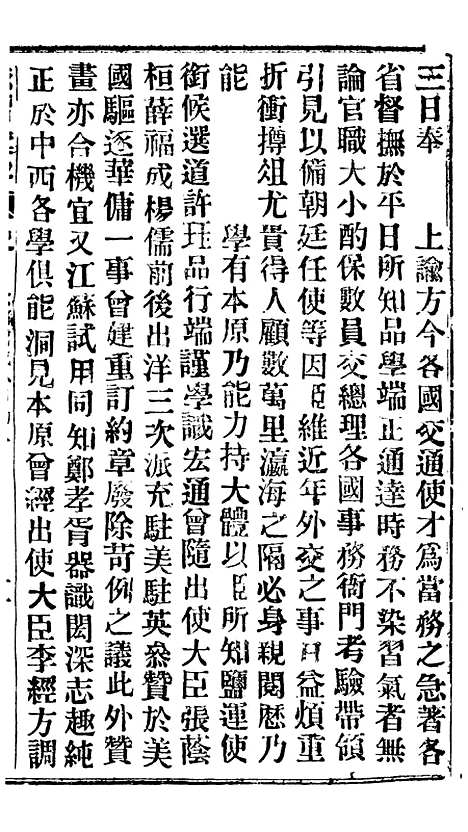 三日奉　　上諭方今各國交通使才爲當務之急著各
省督撫於平日所知品學端正通達時務不染習氣者無
論官職大小酌保數員交總理各國事務衙門考驗帶領
引見以備朝廷任使等因臣維近年外交之事日益煩重
折衝撙俎尤貴得人顧數萬里瀛海之隔必身親閱歷乃
能　　　　學有本原乃能力持大體以臣所知鹽運使
銜候選道許珏品行端謹學識宏通曾隨出使大臣張蔭
桓薛福成楊儒前後出洋三次派充駐美駐英叅贊於美
國驅逐華傭一事曾建重訂約章廢除苛例之議此外贊
畫亦合機宜又江蘇試用同知鄭孝胥器識閎深志趣純
正於中西各學俱能洞見本原曾經出使大臣李經方調